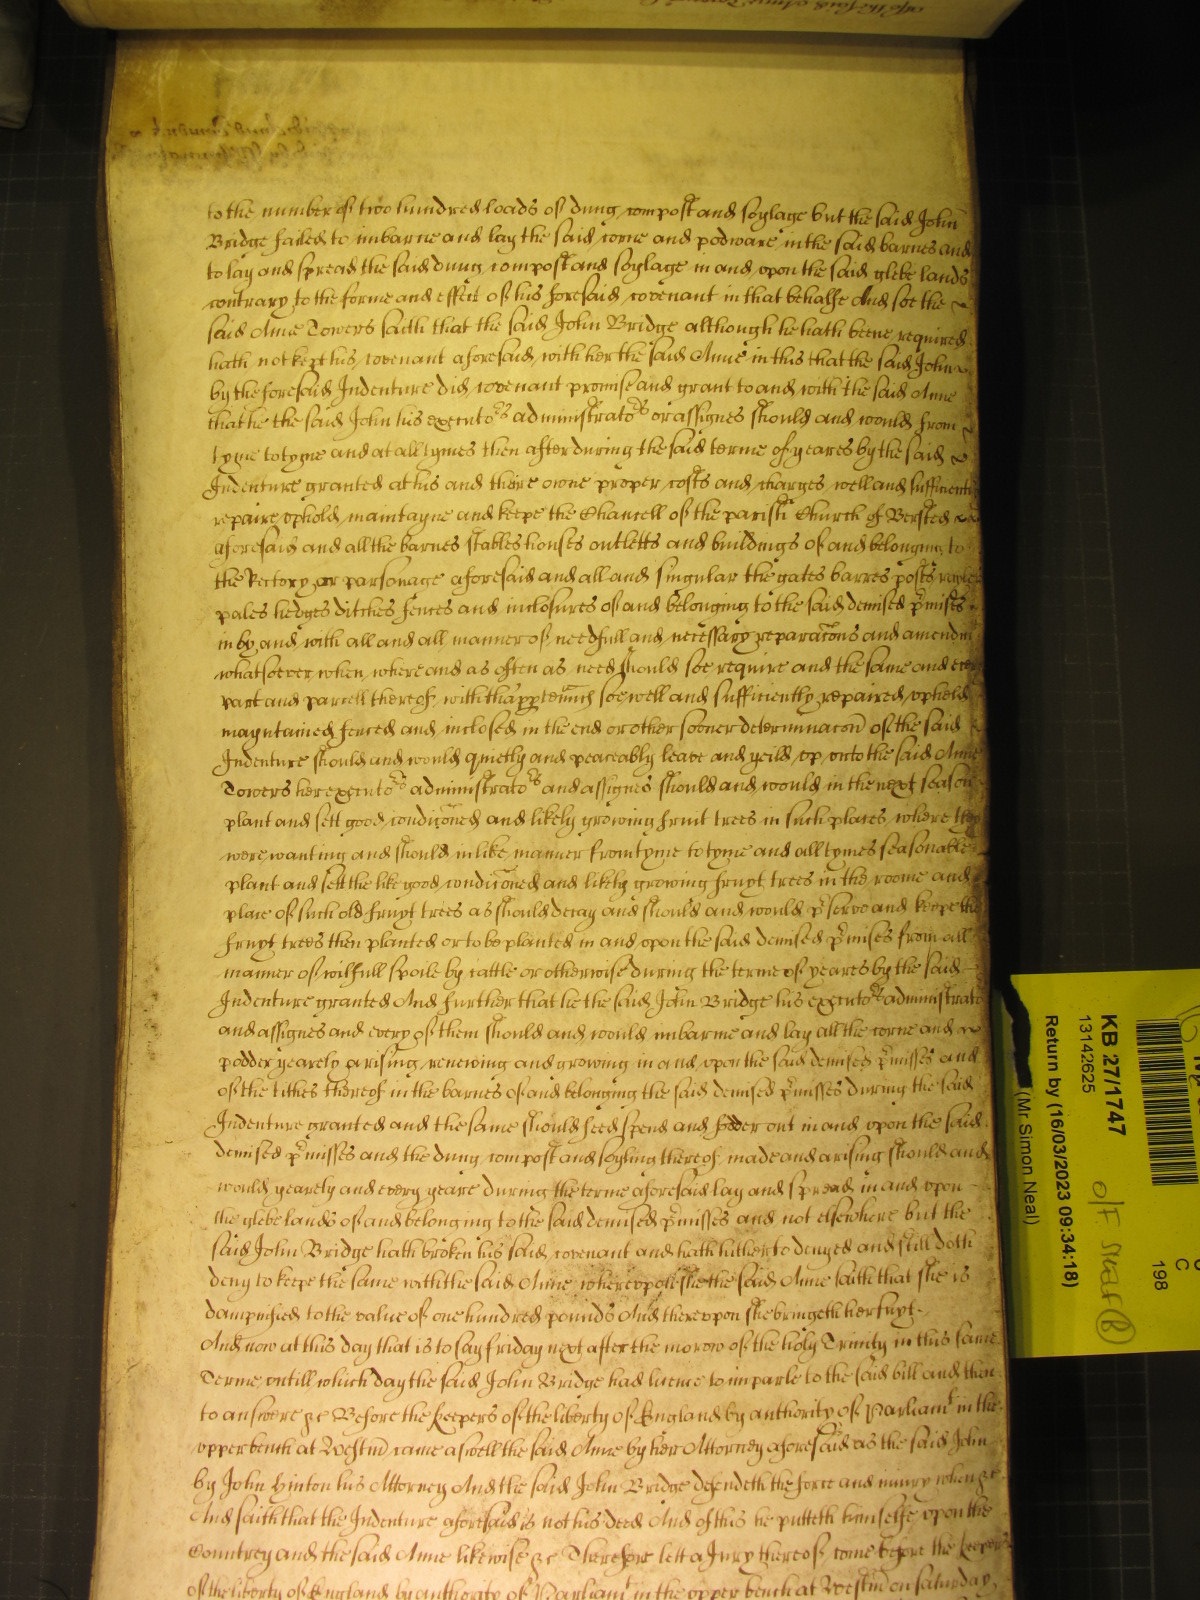 to the number of two hundred loads of dung compost and soylage but the said John
Bridge failed to imbarne and lay the said corne and podware in the said barnes and
to lay and spread the said dung compost and soylage in and upon the said glebe lands
contrary to the forme and effect of his foresaid covenant in that behalfe And soe the
said Anne Towers saith that the said John Bridge although he hath beene required
hath not kept his covenant aforesaid with her the said Anne in this that the said John
by the foresaid Indenture did covenant promise and grant to and with the said Anne
that he the said John his executors administrators or assignes should and would from
tyme to tyme and at all tymes then after during the said terme of yeares by the said
Indenture granted at his and there owne proper costs and charges well and sufficiently
repaire vphold maintayne and keepe the Chancell of the parish Church of Bersted
aforesaid and all the barnes stables houses outletts and buildings of and belonging to
the Rectory or parsonage aforesaid and all and singular the gates barres posts rayles
pales hedges ditches fences and inclosures of and belonging to the said demised pmises
in by and with all and all manner of needfull and necessary reparacons and amendm
whatsoever when where and as often as need should soe require and the same and every
part and parcell thereof with thappten'nces soe well and sufficiently repaired vpheld
mayntained fenced and inclosed in the end or other sooner determinacon of the said
Indenture should and would quietly and peaceably leave and yeild vp vnto the said Anne
Towers her executors administrators and assignes should and would in the next season
plant and sett good condicioned and likely growing fruit trees in such places where they
were wanting and should in like manner from tyme to tyme and all tymes seasonable
plant and sett the like good condicioned and likely growing fruyt trees in the roome and
place of such old fruyt trees as should decay and should and would pserve and keepe the
fruyt trees then planted or to be planted in and vpon the said demised pmises from all
manner of wilfull spoile by cattle or otherwise during the terme of yeares by the said
Indenture granted And further that he the said John Bridge his executors administrators
and assignes and every of them should and would imbarme and lay all the corne and
podder yearely arising renewing and growing in and vpon the said demised pmisses and
of the tithes thereof in the barnes of and belonging the said demised pmisses during the said
Indenture granted and the same should feed spend and fodder out in and vpon the said
demised pmisses and the dung compost and soyling thereof made and arising should and
would yearely and every yeare during the terme aforesaid lay and spread in and vpon
the glebe lands of and belonging to the said demised pmisses and not elsewhere but the
said John Bridge hath broken his said covenant and hath hitherto denyed and still doth
deny to keepe the same with the said Anne wherevpon she the said Anne saith that she is
dampnified to the value of one hundred pounds And therevpon she bringeth her suyt
And now at this day that is to say friday next after the morow of the holy Trinity in this same
Terme vntill which day the said John Bridge had licence to imparle to the said bill and then
to answere &c Before the keepers of the liberty of England by authority of Parliamt in the
vpper bench at Westm came aswell the said Anne by her Attorney aforesaid as the said John
by John Hinton his Attorney And the said John Bridge defendeth the force and iniury when &c
And saith that the Indenture aforesaid is not his deed And of this he putteth himselfe vpon the
Countrey and the said Anne likewise &c Therefore lett a Jury thereof come before the keepers
of the liberty of England by authority of Parliamt in the vpper bench at Westm on saturday
KB 27/1747
13142625
Return by (16/03/2023 09:34:18)
(Mr Simon Neal)
C
198